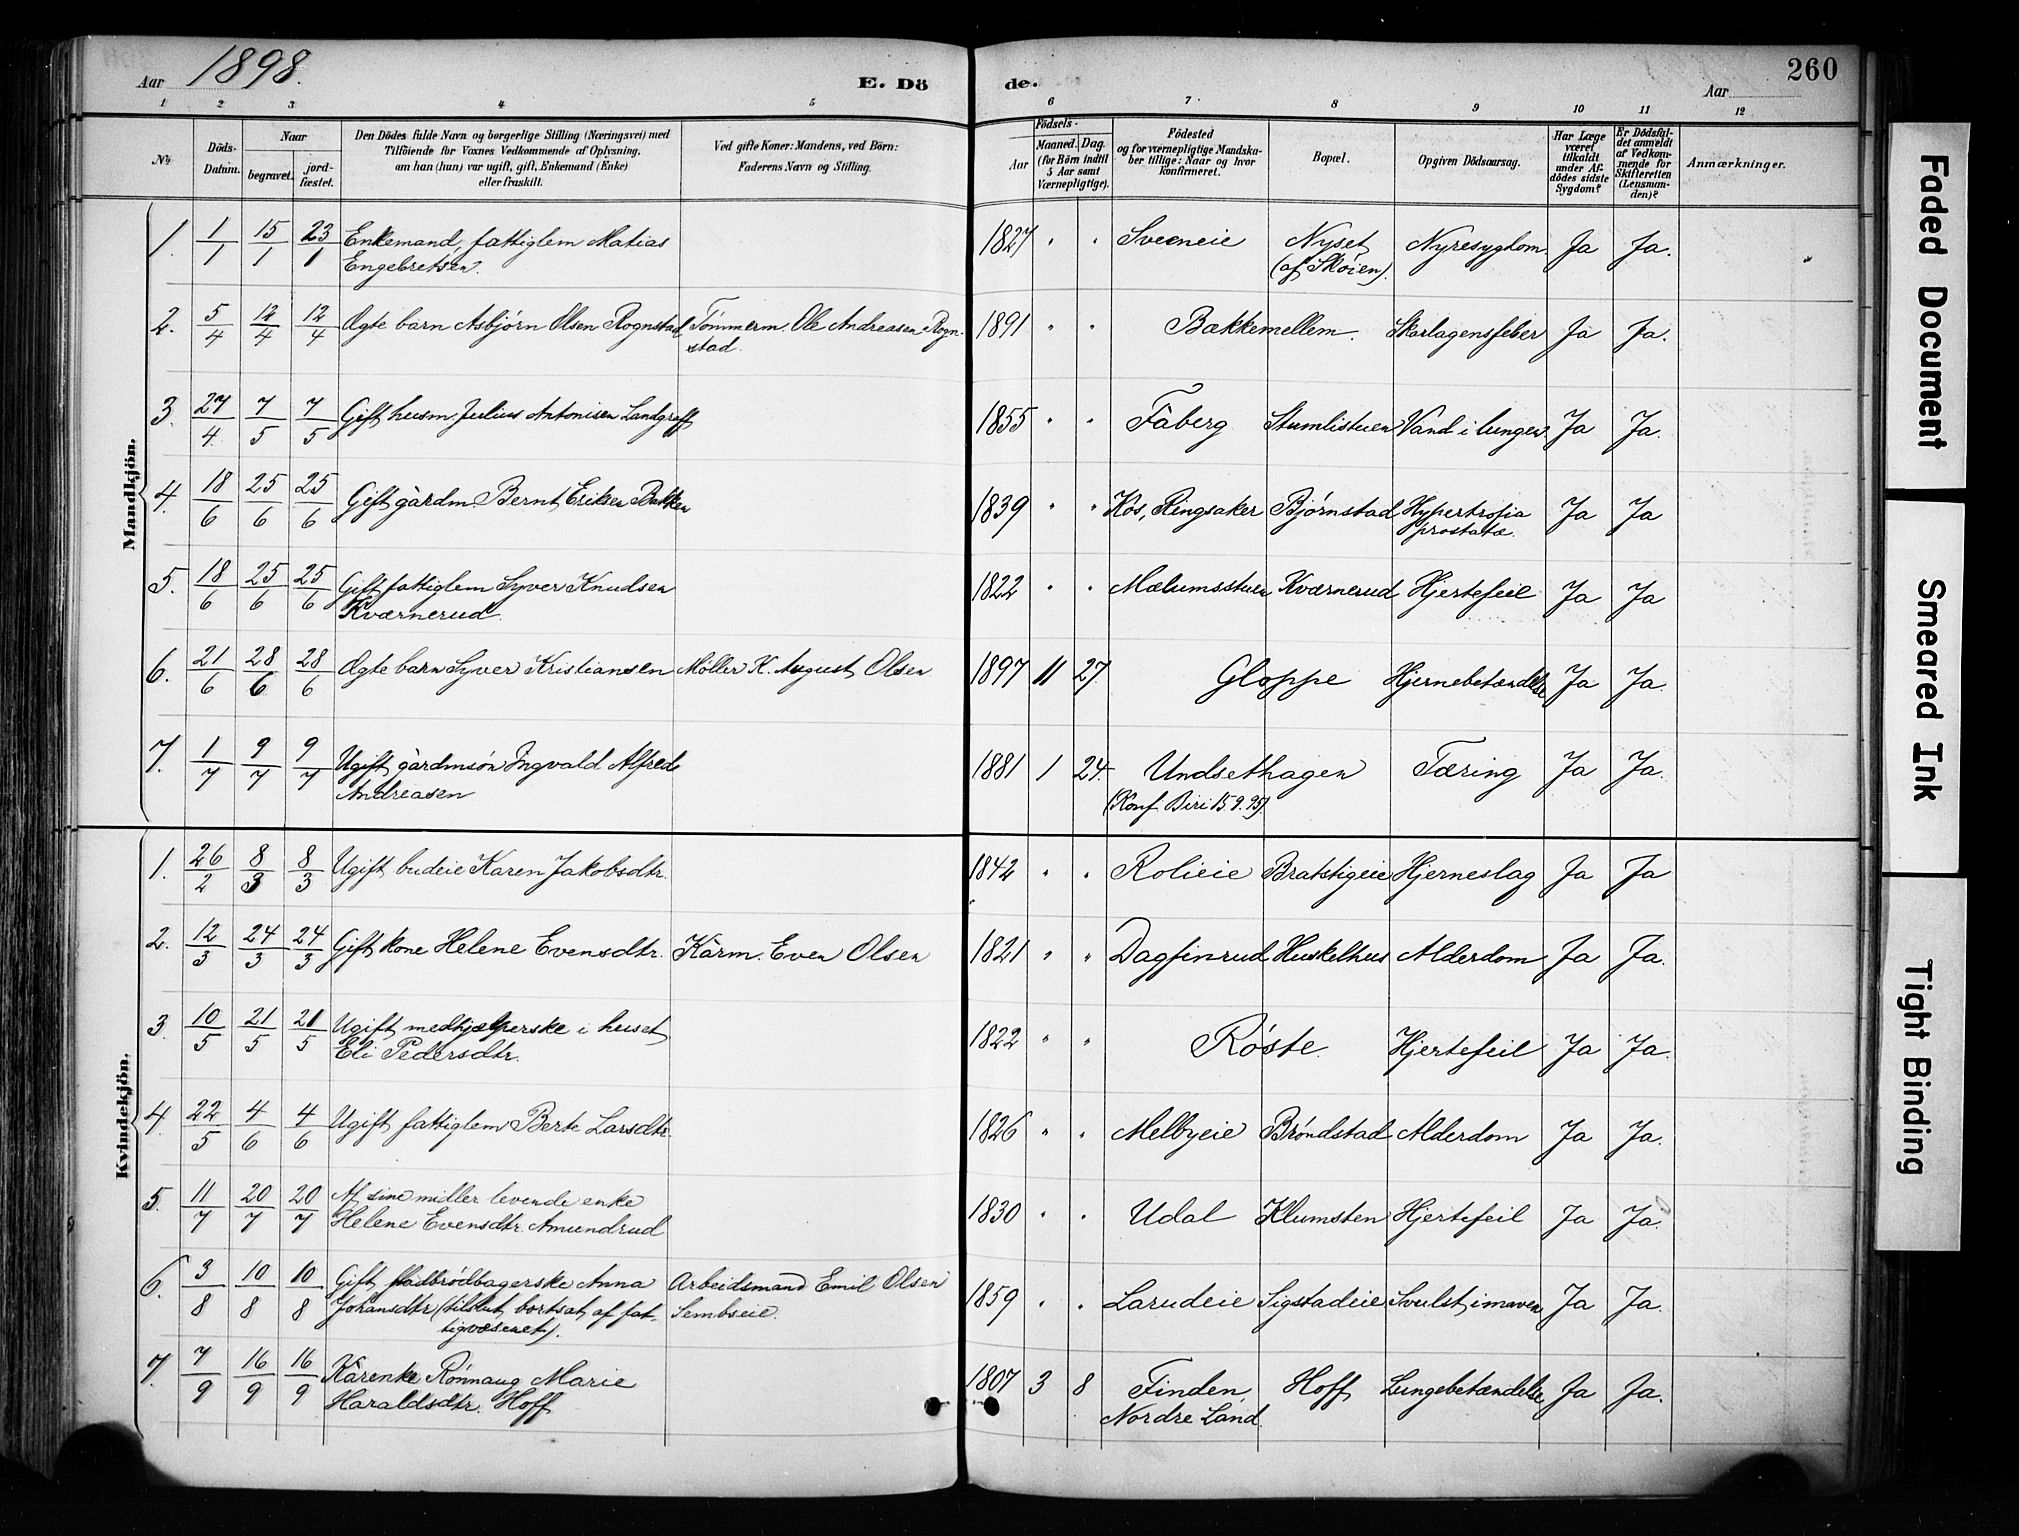 Aar 1898.
E. Döde.
Aar
260
1 2 3 4 5 6 7. 8 9 10 11 12
No
Döds-Datum.
Naar
begravet.
jord-fæstet.
Den Dödes fulde Navn og borgerlige Stilling (Næringsvei) med
Tilföiende for Voxnes Vedkommende af Oplysning,
om han (hun) var ugift, gift, Enkemand (Enke)
eller fraskilt.
Ved gifte Koner: Mandens, ved Börn:
Faderens Navn og Stilling.
Födsels-
Aar
Maaned. Dag.
(for Börn indtil
5 Aar samt
Værnepligtige).
Födested
og for værnepligtige Mandska-
ber tillige: Naar og hvor
konfirmeret.
Bopæl.
Opgiven Dödsaarsag.
Har Læge
været
tilkaldt
under Af-
dödes sidste
Sygdom?
Er Dödsfal-
det anmeldt
af Vedkom-
mende for
Skifteretten
(Lensman-
den)?
Anmærkninger.
Mandkjön.
1. 1/1 15/1 23/1 Enkemand, fattiglem Matias 1827 " " Sveeneie Nyset Nyresygdom Ja Ja.
Engebretsen. (af Skøien).
2. 5/4 12/4 12/4 Ægte barn Asbjørn Olsen Rognstad Tømmerm. Ole Andreasen Rogn- 1891 " " Bakkemellem. Skarlagensfeber Ja Ja.
stad.
3. 27/4 7/5 7/5 Gift husm. Julius Antonisen Landgraff 1855 " " Fåberg Stumlistuen Vand i lungen Ja Ja.
4. 18/6 25/6 25/6 Gift gårdm. Bernt Eriksen Bakken 1839 " " Kos, Ringsaker Bjørnstad Hypertrofia Ja Ja
prostatæ.
5. 18/6 25/6 25/6 Gift fattiglem Syver Knudsen 1822 " " Mælumsstuen Kværnerud Hjertefeil Ja Ja
Kværnerud.
6. 21/6 28/6 28/6 Ægte barn Syver Kristiansen Møller K. August Olsen 1897 11 27 Gloppe Hjernebetændelse Ja Ja.
7. 1/7 9/7 9/7 Ugift gårdmsøn Ingvald Alfred 1881 1 24 Undsethagen Tæring Ja Ja.
Andreasen (Konf Biri 15.9.95).
Kvindekjön.
1. 26/2 8/3 8/3 Ugift budeie Karen Jakobsdtr. 1842 " " Rolieie Bratstigeie Hjerneslag Ja Ja
2. 12/3 24/3 24/3 Gift kone Helene Evensdtr. Kårm. Even Olsen 1821 " " Dagfinrud Huskelhus Alderdom Ja Ja.
3. 10/5 21/5 21/5 Ugift medhjælperske i huset 1822 " " Røste. Hjertefeil Ja Ja.
Eli Pedersdtr.
4. 22/5 4/6 4/6 Ugift fattiglem Berte Larsdtr. 1826 " " Melbyeie Brøndstad Alderdom Ja Ja.
5. 11/7 20/7 20/7 Af sine midler levende enke 1830 " " Udal Klumsten Hjertefeil Ja Ja.
Helene Evensdtr. Amundrud
6. 3/8 10/8 10/8 Gift fladbrødbagerske Anna Arbeidsmand Emil Olsen 1859 " " Larudeie Sigstadeie Svulst i maven Ja Ja.
Johansdtr (tilslut bortsat af fat- Sembseie.
tigvæsenet).
7. 7/9 16/9 16/9 Kårenke Rønnaug Marie 1807 3 8 Finden Hoff Lungebetændelse Ja Ja.
Haraldsdtr. Hoff Nordre Land.
Faded Document
Smeared Ink
Tight Binding